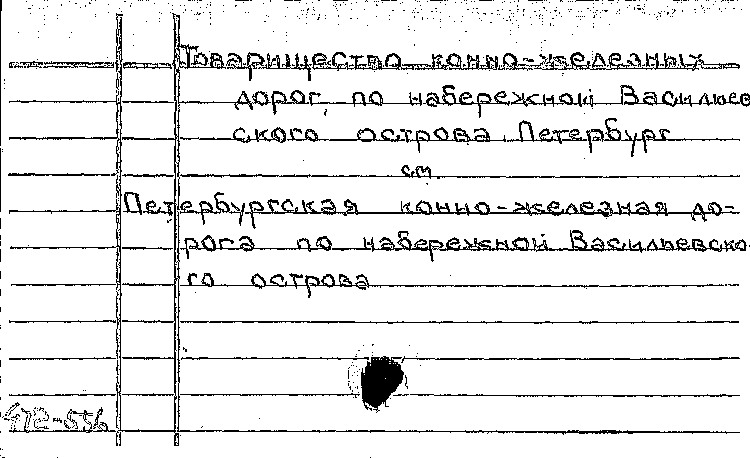 Товарищество конно-железных
дорог, по набережной Васильев
ского острова. Петербург
см.
Петербургская конно-железная до-
рога по набережной Васильевско-
го острова
472-556